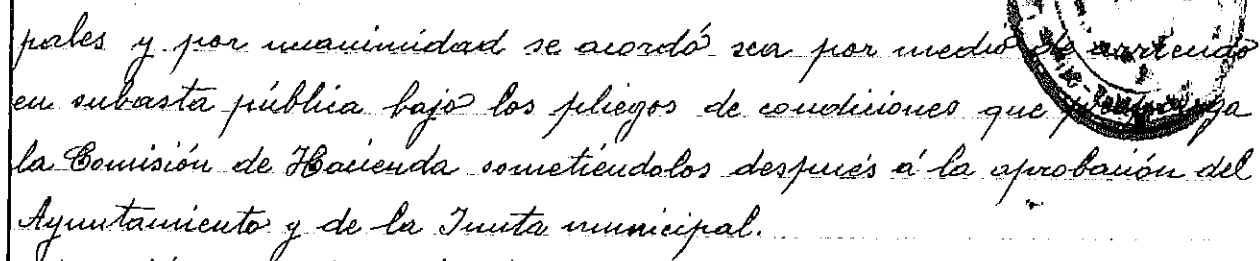 pales y por unanimidad se acordó sea por medio de arriendo
en subasta pública bajo los pliegos de condiciones que proponga
la Comisión de Hacienda sometiéndolos después á la aprobación del
Ayuntamiento y de la Junta municipal.